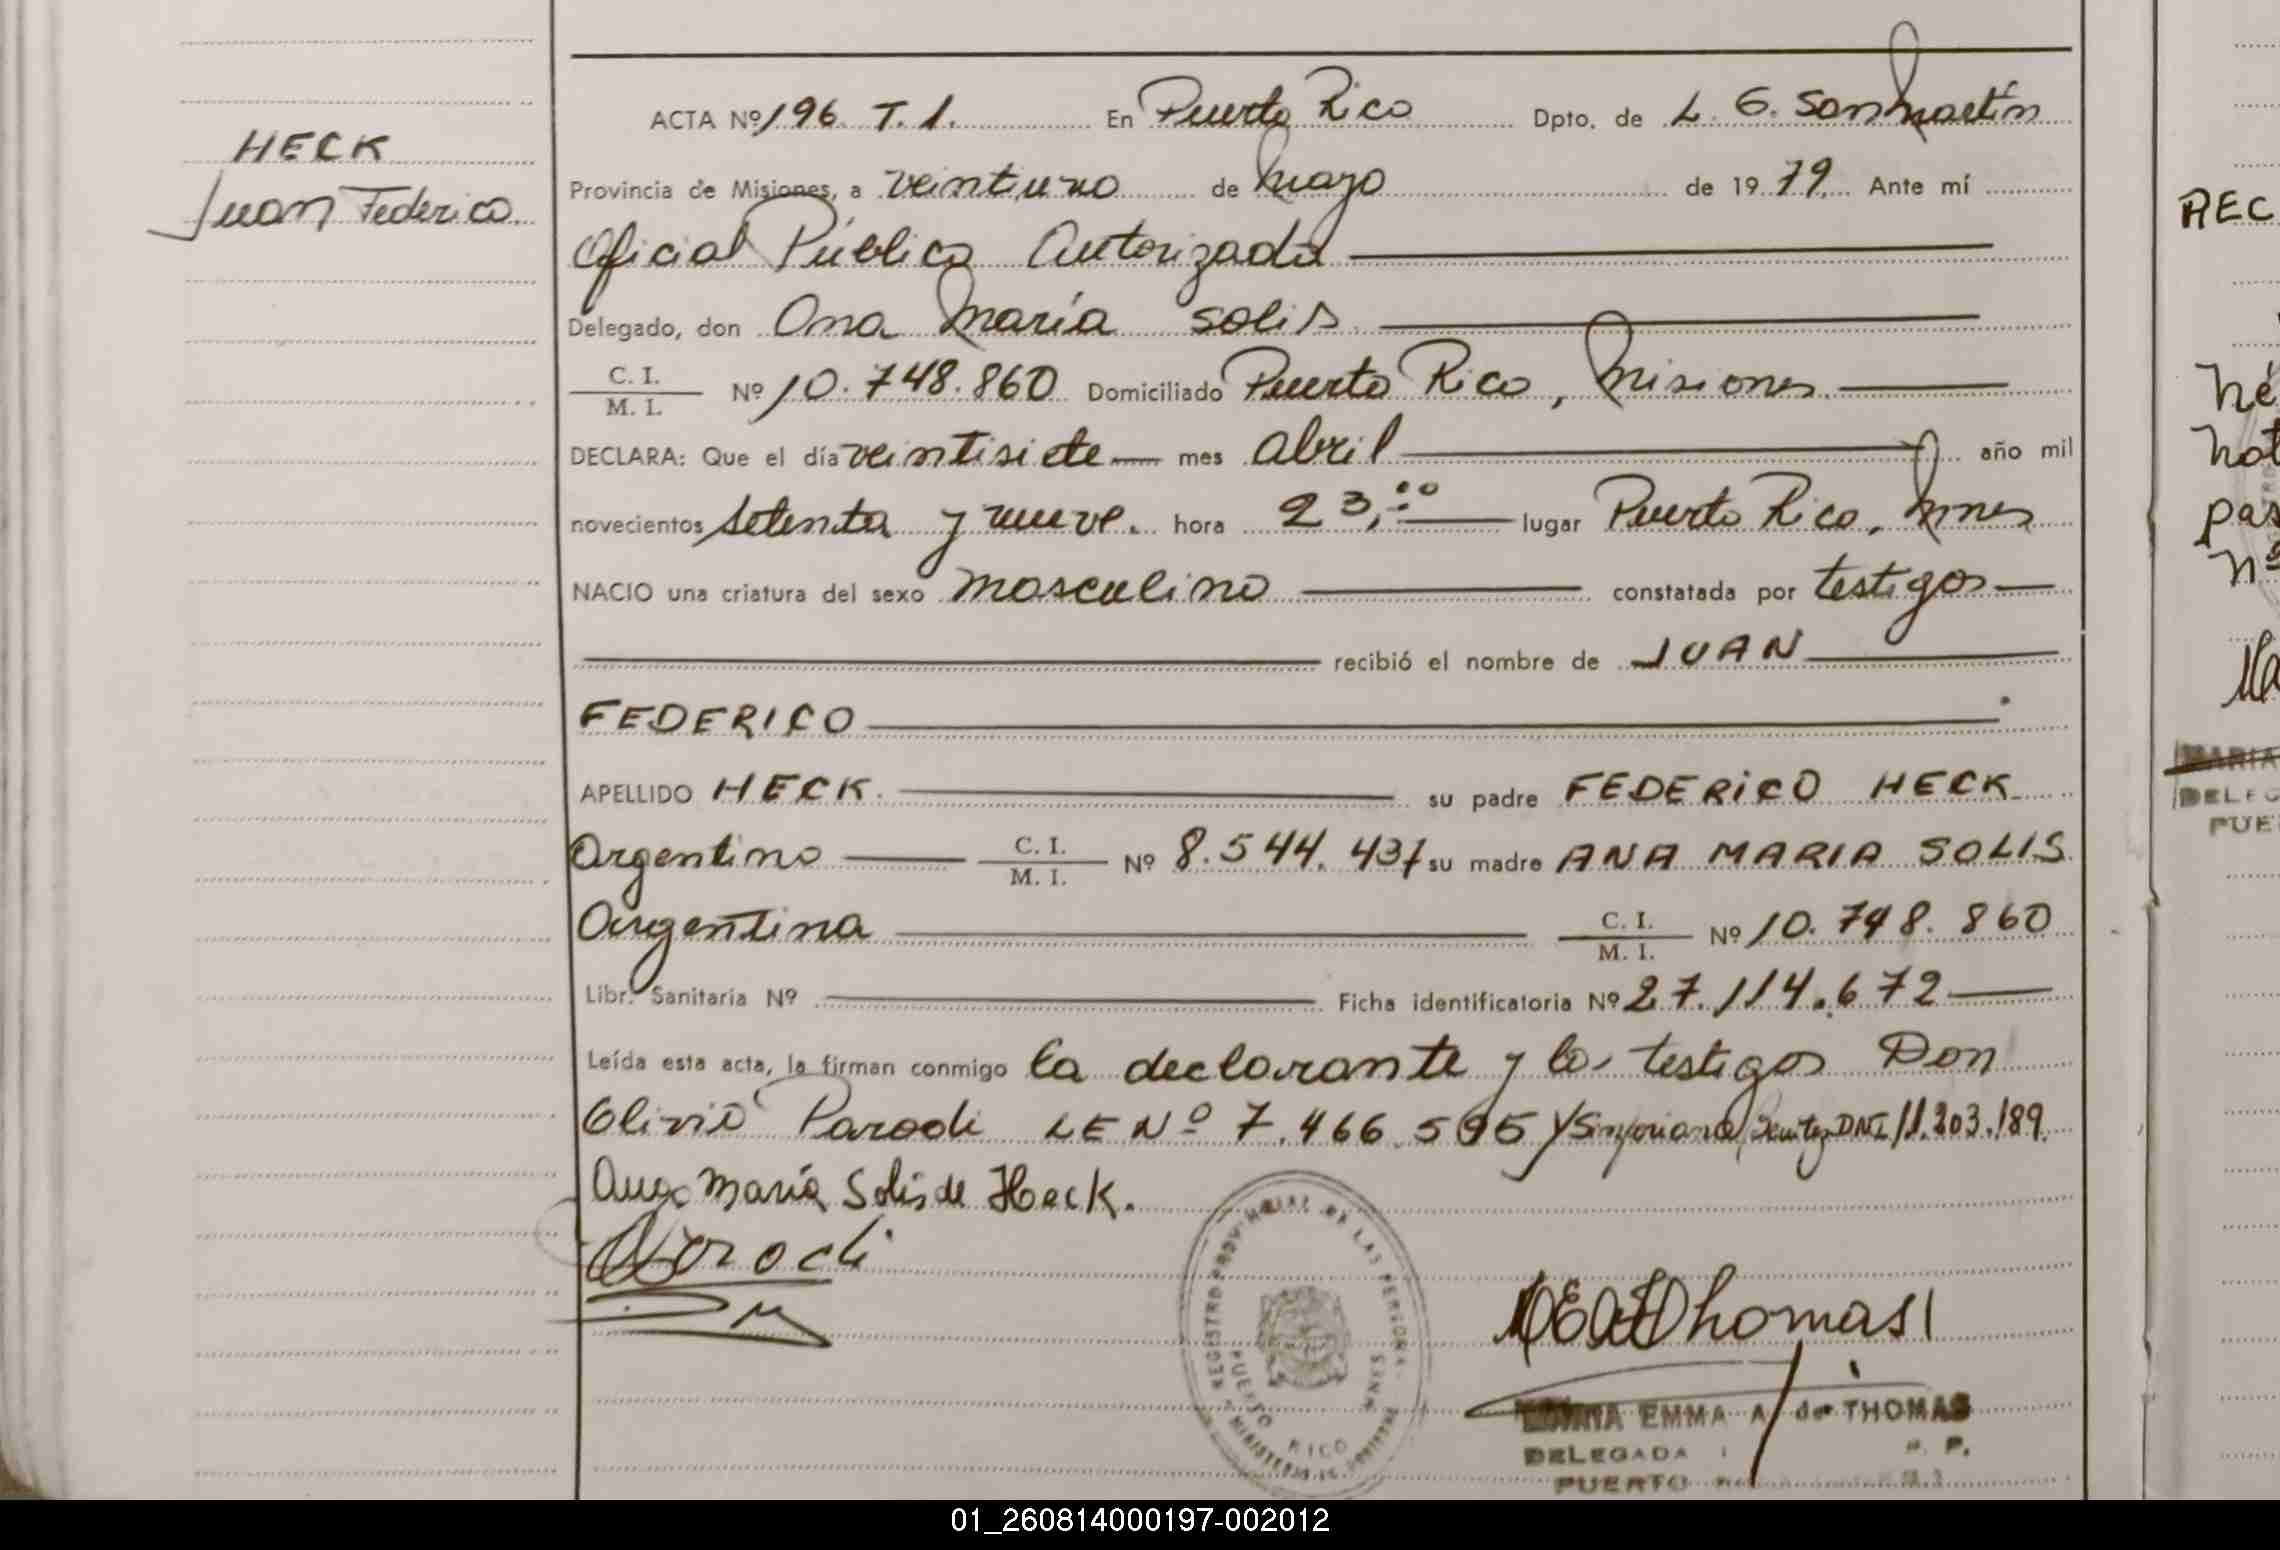 HECK
Juan Federico
ACTA Nº 196 T. 1. En Puerto Rico Dpto. de L. G. San Martín
Provincia de Misiones, a veintiuno de Mayo de 19 79. Ante mí
Oficial Público Autorizada
Delegado, don Ana María Solis
C. I. / M. I. Nº 10.748.860 Domiciliado Puerto Rico, Misiones.
DECLARA: Que el día veintisiete mes Abril año mil
novecientos setenta y nueve. hora 23,00 lugar Puerto Rico, Mnes
NACIO una criatura del sexo masculino constatada por testigos
recibió el nombre de JUAN
FEDERICO
APELLIDO HECK. su padre FEDERICO HECK
Argentino C. I. / M. I. Nº 8.544.431 su madre ANA MARIA SOLIS
Argentina C. I. / M. I. Nº 10.748.860
Libr. Sanitaria Nº Ficha identificatoria Nº 27.114.672
Leída esta acta, la firman conmigo la declarante y los testigos Don
Olivio Parodi LE Nº 7.466.595 y Sinforiana Benitez DNI 11.203.189.
Ana María Solis de Heck.
Parodi
REGISTRO PROVINCIAL DE LAS PERSONAS
PUERTO RICO
MNES
Thomas
MARIA EMMA A de THOMAS
DELEGADA
PUERTO
REC
hot
pas
Nº
Ma
MARIA
DELEG
PUE
01_260814000197-002012